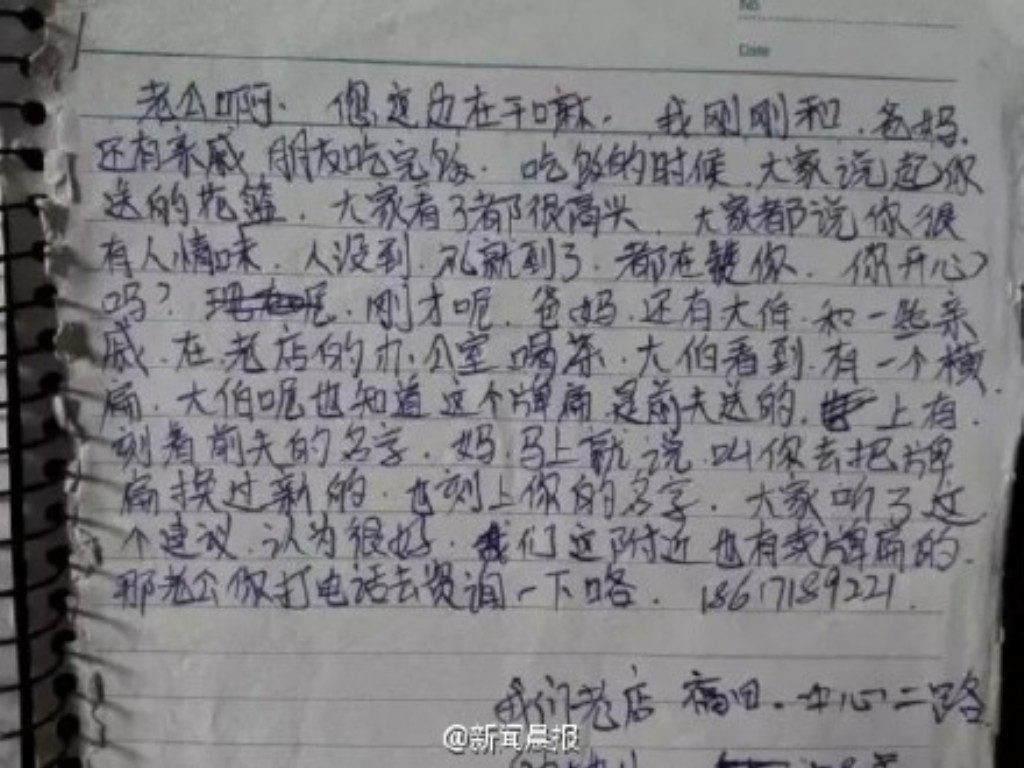 No
Date
老公啊. 您这边在干嘛. 我刚刚和.爸妈.
还有亲戚 朋友吃完饭. 吃饭的时候.大家说起你
送的花篮. 大家看了都很高兴. 大家都说你很
有人情味. 人没到.礼就到了.都在赞你. 你开心
吗? 刚才呢.爸妈.还有大伯.和一些亲
戚.在老店的办公室喝茶.大伯看到.有一个横
扁.大伯呢也知道这个牌扁是前夫送的. 上有.
刻着前夫的名字.妈.马上就说.叫你去把牌
扁换过新的.也刻上你的名字.大家听了这
个建议.认为很好.我们这附近也有卖牌扁的.
那老公你打电话去资询一下咯. 18617189221.
我们老店 福田.中心二路
@新闻晨报